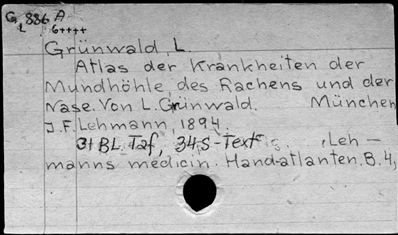 G 886 A
L 6++++
Grünwald, L.
Atlas der Krankheiten der
Mundhöhle, des Rachens und der
Nase. Von L. Grünwald. München
J. F. Lehmann, 1894.
31 BL. Taf, 34,S-Text , Leh-
manns medicin. Handatlanten. B. 4,